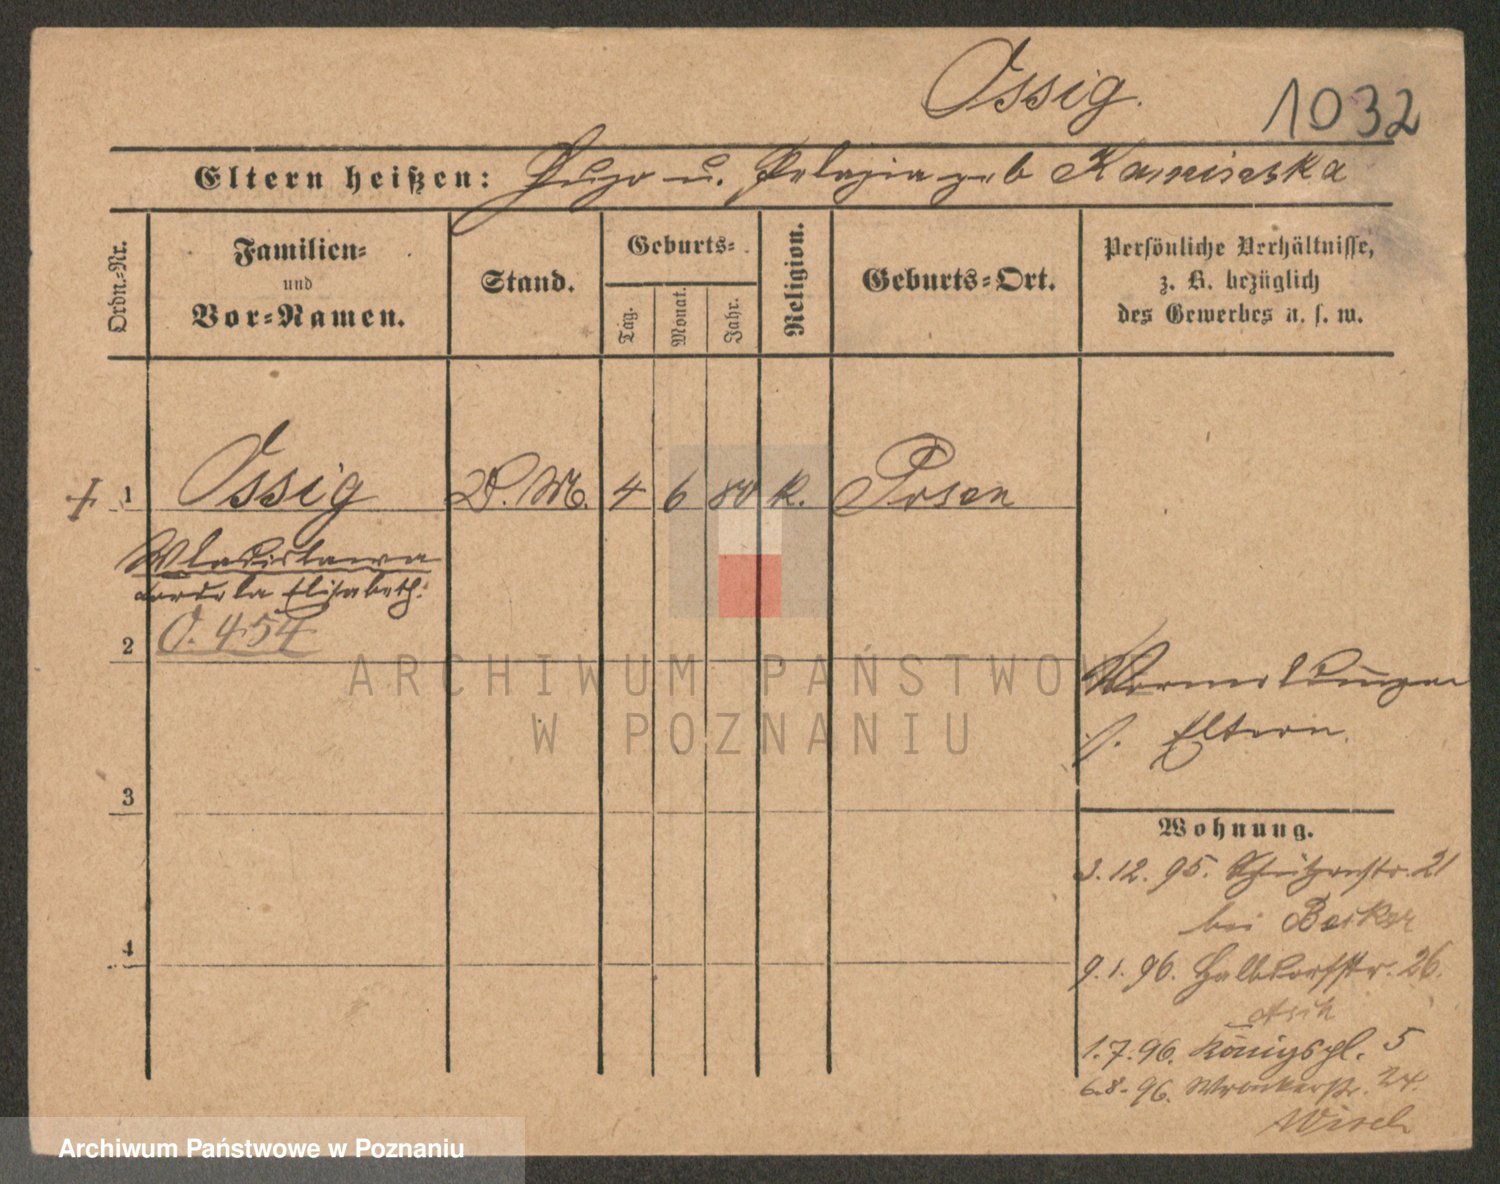 Ossig.
1032
Eltern heißen: Hugo u. Pelagia geb Kaminska
Ordn.-Nr.
Familien-
und
Vor-Namen.
Stand.
Geburts-
Tag.
Monat.
Jahr.
Religion.
Geburts-Ort.
Persönliche Verhältnisse,
z. B. bezüglich
des Gewerbes u. s. w.
1 Ossig D. M. 4 6 80 K. Posen
Wladislawa
Elisabeth.
O. 454
2
Vormeldungen
s. Eltern.
ARCHIWUM PAŃSTWOWE
W POZNANIU
3
Wohnung.
3.12.95. Schützenstr. 21
bei Becker
4
9.1.96. Halbdorfstr. 26.
1.7.96. Königspl. 5
6.8.96. Wronkerstr. 24.
Archiwum Państwowe w Poznaniu